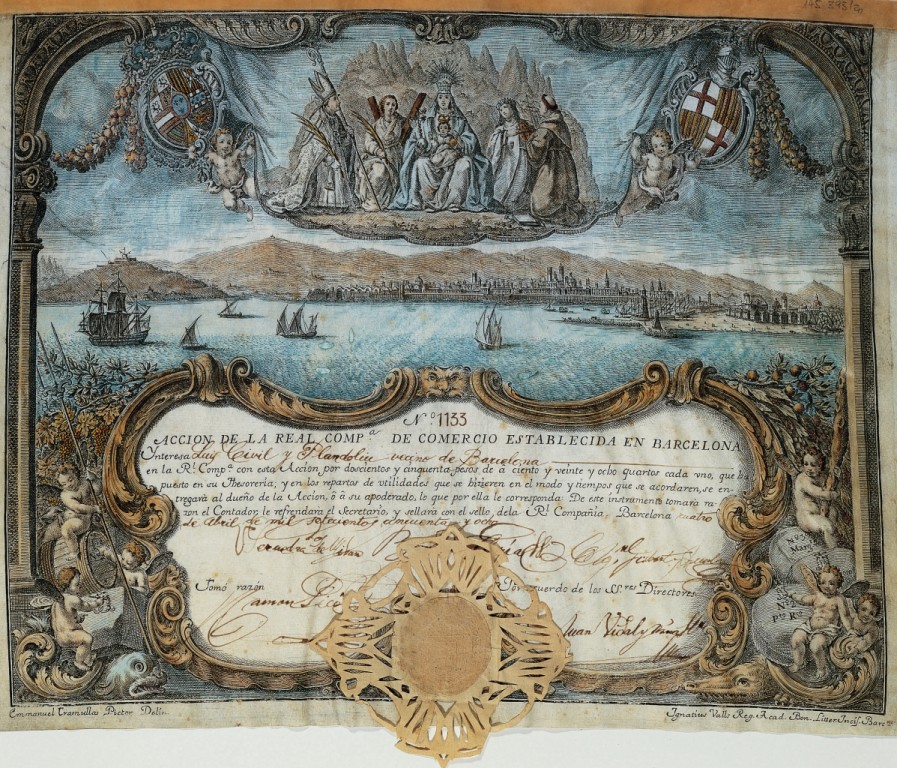 Nº 1133
ACCION DE LA REAL COMPª DE COMERCIO ESTABLECIDA EN BARCELONA
Interesa Luis Civil y Plandolit vecino de Barcelona
en la Rˡ. Compª con esta Accion, por doscientos y cinquenta pesos de à ciento y veinte y ocho quartos cada vno, que ha
puesto en su Thesoreria; y en los repartos de vtilidades que se hizieren en el modo y tiempos que se acordaren, se en-
tregarà al dueño de la Accion, ò à su apoderado, lo que por ella le corresponda. De este instrumento tomarà ra-
zon el Contador; le refrendarà el Secretario, y sellarà con el sello, de la Rˡ. Compañia. Barcelona quatro
de Abril de mil setecientos cinquenta y ocho
Tomò razòn
Por acuerdo de los SSʳᵉˢ Directores
Juan Vidal y
Nº 3
Marg
Nº 2
Pᵗᵒ Rº
Emmanuel Tramullas Pictor Delin.
Ignatius Valls Reg. Acad. Bon. Litter. Incis. Barᶜ